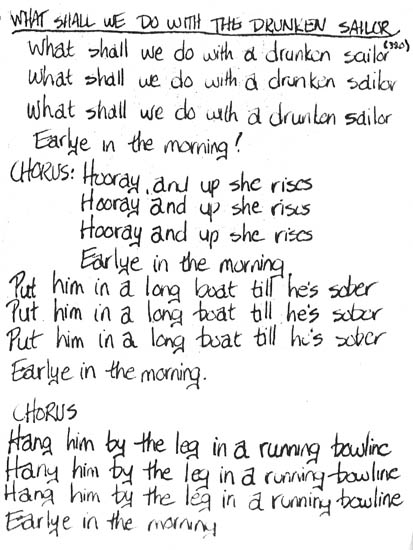 WHAT SHALL WE DO WITH THE DRUNKEN SAILOR
What shall we do with a drunken sailor
What shall we do with a drunken sailor
What shall we do with a drunken sailor
Earlye in the morning!
CHORUS: Hooray and up she rises
Hooray and up she rises
Hooray and up she rises
Earlye in the morning
Put him in a long boat till he's sober
Put him in a long boat till he's sober
Put him in a long boat till he's sober
Earlye in the morning.
CHORUS
Hang him by the leg in a running bowline
Hang him by the leg in a running bowline
Hang him by the leg in a running bowline
Earlye in the morning